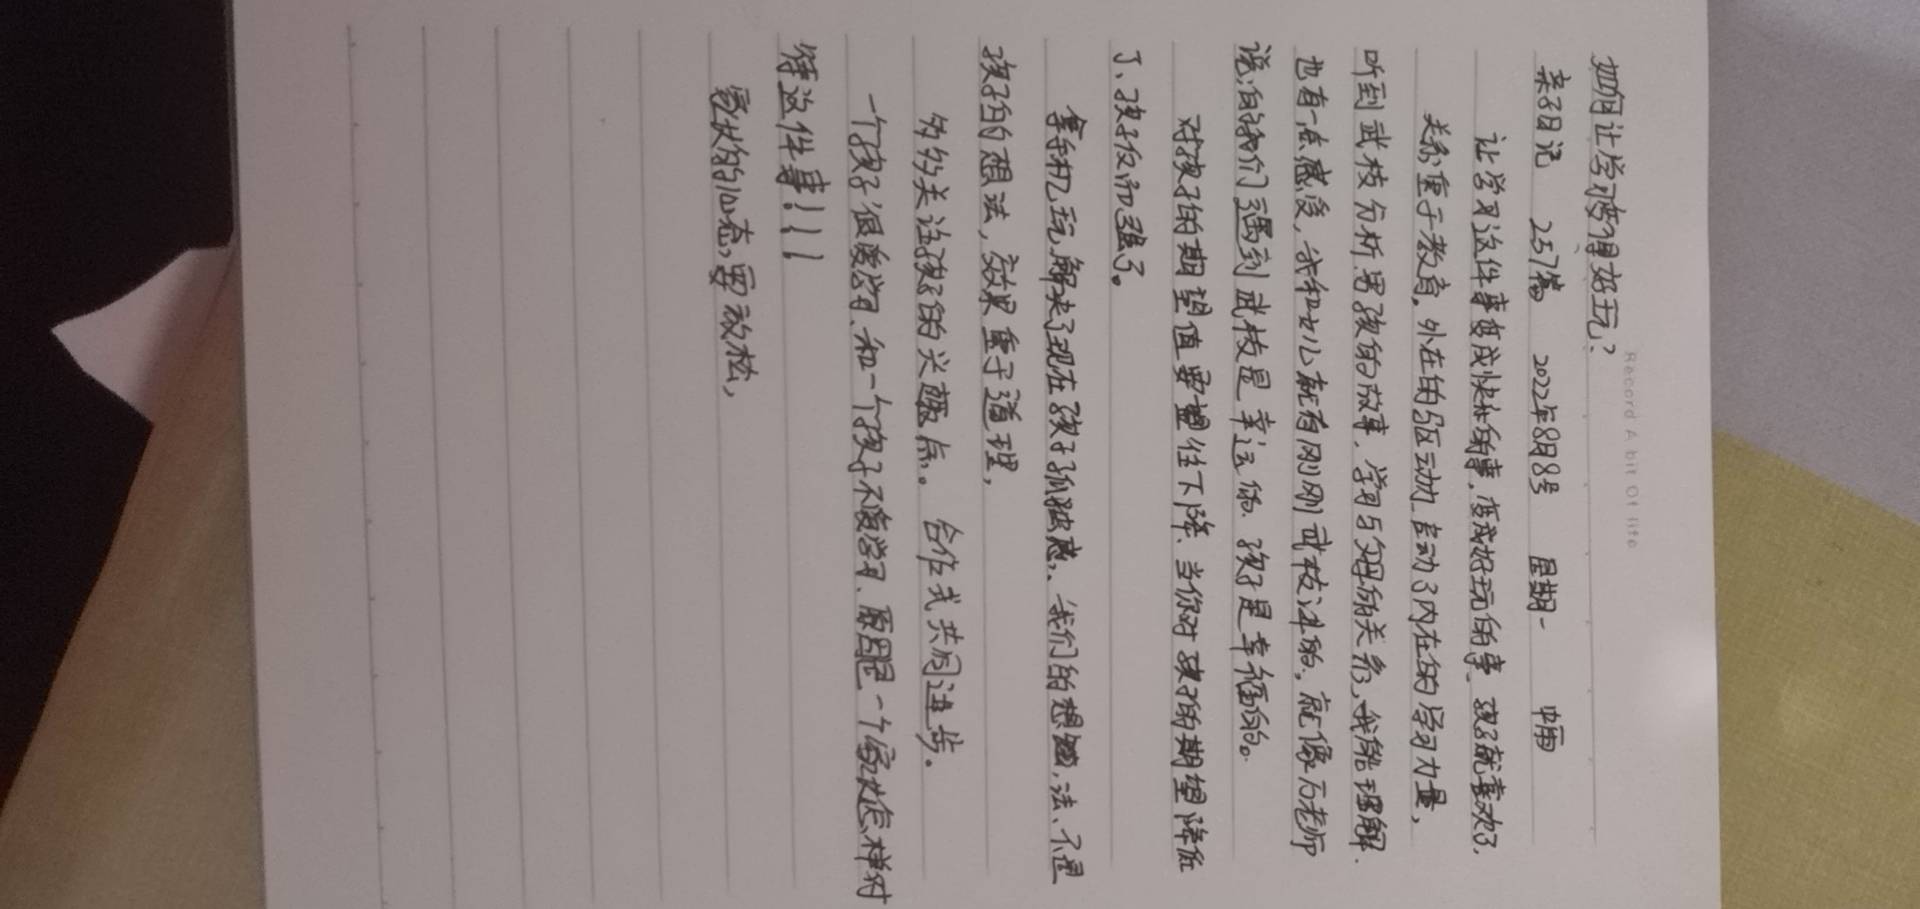 Record A bit Of life
如何让学习变得好玩？
亲子日记 257篇 2022年8月8号 星期一 中雨
让学习这件事变成快乐的事，变成好玩的事，孩子就喜欢了，
关系重于教育。外在的驱动力，启动了内在的学习力量，
听到武枝分析男孩的故事，学习与父母的关系，我能理解，
也有一点感受，我和女儿就有刚刚武枝过来的，就像石老师
说的我们遇到武枝是幸运的、孩子是幸福的。
对孩子的期望值要往下降、当你对孩子的期望降低
了、孩子反而强了。
拿手机玩，解决了现在孩子孤独感，我们的想法、不是
孩子的想法，效果重于道理，
多多关注孩子的兴趣点。合作式共同进步。
一个孩子很爱学习、和一个孩子不爱学习、原因是一个家长怎样对
待这件事！！！
家长的心态，要放松，